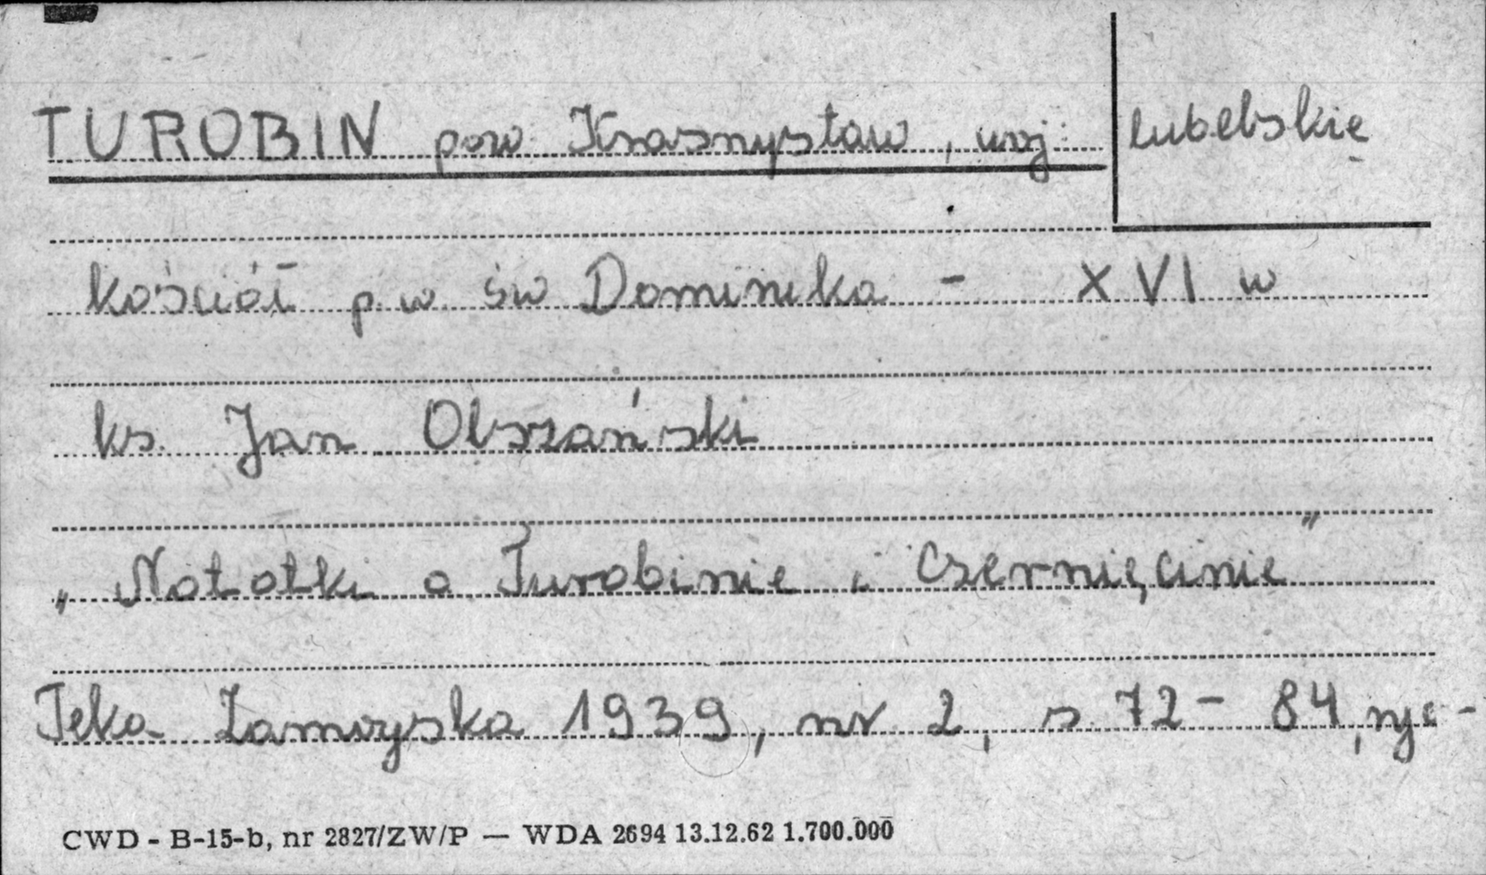 TUROBIN pow. Krasnystaw, woj. lubelskie
kościół p.w. św Dominika - XVI w
ks. Jan Olszański
„Notatki o Turobinie i Czernięcinie"
Teka Zamojska 1939, nr 2, s. 72 - 84,
CWD - B-15-b, nr 2827/ZW/P — WDA 2694 13.12.62 1.700.000